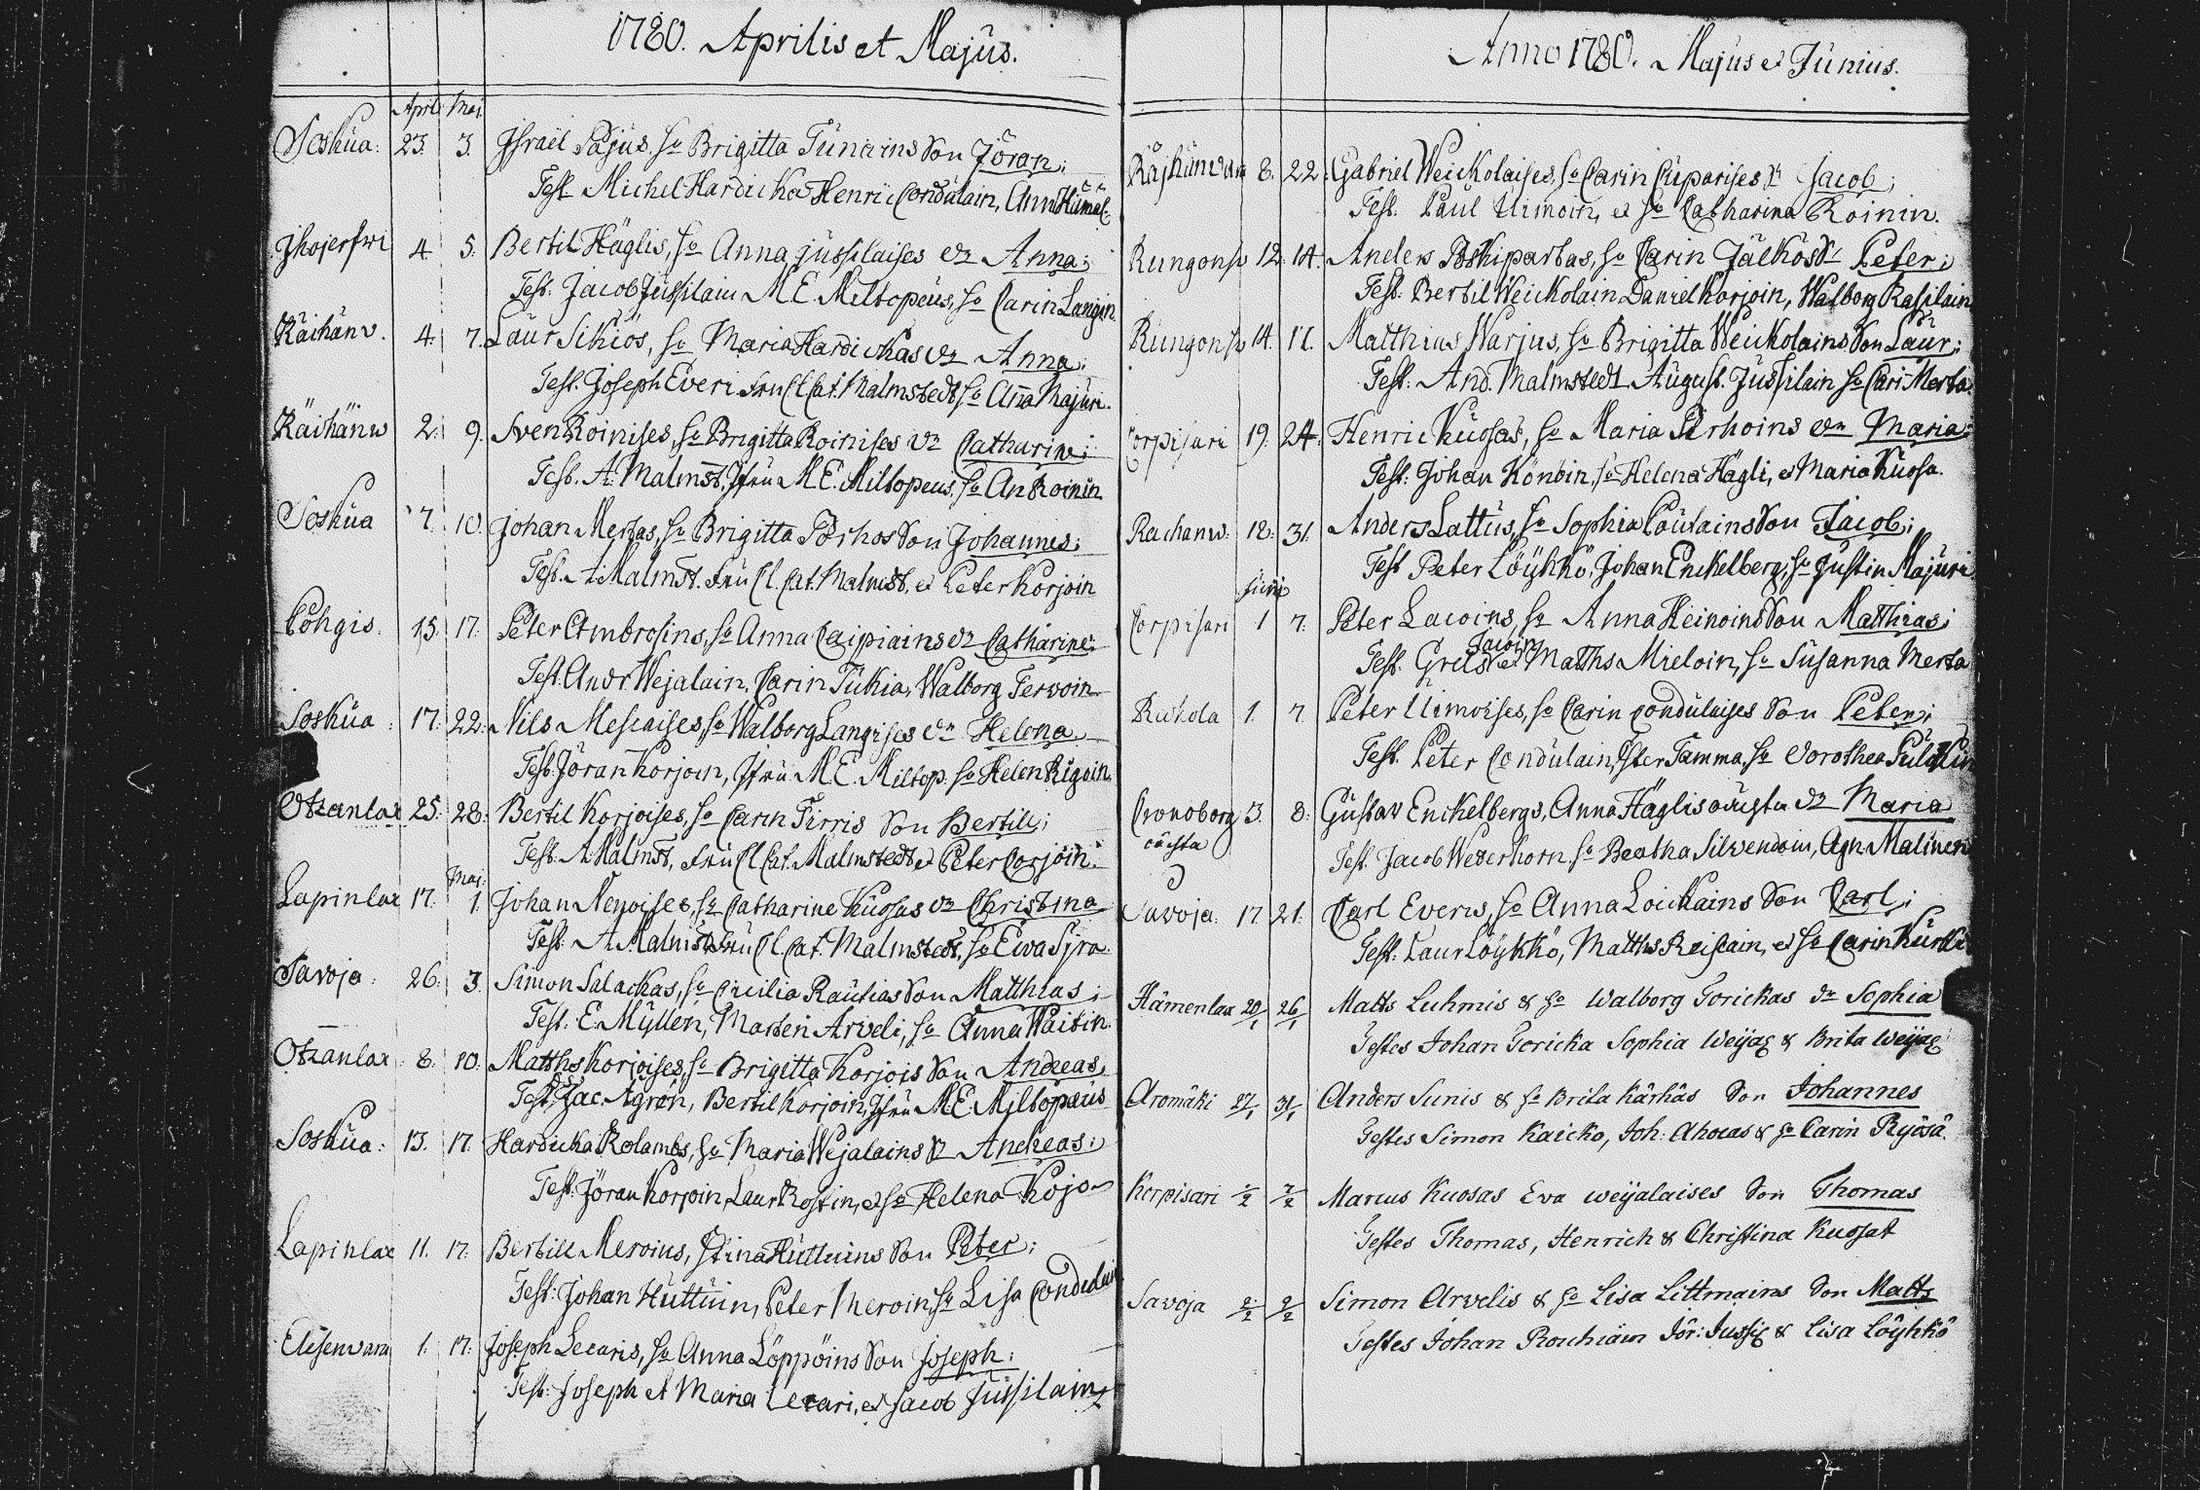 1780. Aprilis et Majus.
April Maj
Soskua: 23. 3. Israel Pajus, h:o Brigitta Tuncins Son Jöran;
Test. Michel Hardicka Henric Condulain, Ann Hämäl:
Ihojerfwi 4 5. Bertil Häglis, h:o Anna Jussilaises dr Anna;
Test. Jacob Jussilain M.E. Miltopeus, h:o Carin Langin.
Räihänw. 4. 7. Laur Sikiös, h:o Maria Hardickas dr Anna;
Test. Joseph Everi Fru Cl. Cat. Malmstedt, h:o Anna Majuri.
Räihänw 2. 9. Sven Roinises, h:o Brigitta Roinises dr Catharine;
Test. A. Malmst, Jfru M.E. Miltopeus, h:o An Roinin
Soskua 7. 10. Johan Mertas, h:o Brigitta Porhos Son Johannes;
Test. A Malmst. Fru Cl. Cat. Malmst, et Peter Korjoin
Pohgis. 15. 17. Peter Ambrosins, h:o Anna Caipiains dr Catharine;
Test. Andr Wejalain, Carin Tukia, Walborg Tervoin
Soskua 17. 22. Nils Mescaises, h:o Walborg Langises dr Helena
Test. Jöran Korjoin, Jfru M.E. Miltop. h:o Helen Rigoin.
Otzanlax 25. 28. Bertil Korjoises, h:o Carin Tirris Son Bertill;
Test. A Malmst, Fru Cl Cat. Malmstedt et Peter Corjoin.
Maj:
Lapinlax 17. 1. Johan Nenoises, h:o Catharine Kuosas dr Christina
Test. A Malmst Fru Cl. Cat. Malmstedt, h:o Ewa Sira
Savoja. 26. 3. Simon Salackas, h:o Cicilia Rautias Son Matthias;
Test. E. Myllen, Marten Arveli, h:o Anna Waitin.
Otzanlax 8. 10. Matths Korjoises, h:o Brigitta Korjois Son Andreas,
Test. Jac. Agren, Bertil Korjoin, Jfru M.E. Miltopæus
Soskua: 13. 17. Hardicka Rolambs, h:o Maria Wejalains Andreas;
Test. Jöran Korjoin, Laur Rostin, et h:o Helena Kojo
Lapinlax 11. 17. Bertill Meroins, Stina Huttuins Son Peter;
Test. Johan Huttuin, Peter Meroin, h:o Lisa Condulai
Elisenvara 1. 17. Joseph Lecaris, h:o Anna Löppöins Son Joseph;
Test. Joseph et Maria Lecari, et Jacob Jussilain
Anno 1780. Majus et Junius.
Räjhänvara 8. 22. Gabriel Weickolaises, h:o Carin Cuparises Jacob;
Test. Paul Uimoin, et h:o Catharina Roinin.
Rungonso 12. 14. Anders Poskipartas, h:o Carin Jälkös Peter;
Test. Bertil Weickolain Daniel Korjoin, Walborg Rasilain
Rungonso 14. 17. Matthias Warjus, h:o Brigitta Weickolains Son Laur;
Test. And. Malmstedt August. Jussilain h:o Cari Merta
Corpisari 19. 24. Henric Kuosas, h:o Maria Pirhoins dr Maria
Test. Johan Könöin, h:o Helena Hägli, et Maria Kuosa.
Rachanw: 18. 31. Anders Lattus, h:o Sophia Coutains Son Jacob;
Test Peter Löyhkö, Johan Enckelberg, h:o Justin Majuri
Juni
Corpisari 1 7. Peter Lacoins, h:o Anna Heinoins Son Matthias;
Test. Grels Jacoin et Matths Mieloin, h:o Susanna Merta
Reikola 1. 7. Peter Uimoises, h:o Carin Condulaises Son Peter;
Test. Peter Condulain, Ester Tamma, h:o Dorothea Pulckin
Cronoborg 3. 8. Gustav Enckelbergs, Anna Häglis dr Maria
Test. Jacob Weterhorn, h:o Beatha Silvendoin, Agn. Malinen
Savoja. 17. 21. Carl Everis, h:o Anna Loickains Son Carl;
Test. Laur Löyhkö, Matths Reiscain, et h:o Carin Kurki
Hämenlax 20/1 26/1 Matts Luhmis & h:o Walborg Gorickas dr Sophia
Testes Johan Goricka Sophia Weijas & Brita Weijas
Aromäki 27/1 31/1 Anders Sunis & h:o Brita Kärhäs Son Johannes
Testes Simon Kaicko, Joh: Ahocas & h:o Carin Ryösä.
Korpisari 1/2 7/2 Marcus Kuosas Ewa Weijalaises Son Thomas
Testes Thomas, Henrich & Christina Kuosat
Savoja 2/2 9/2 Simon Arvelis & h:o Lisa Littmains Son Matts
Testes Johan Rouhiain Jör: Jussis & Lisa Löyhkö